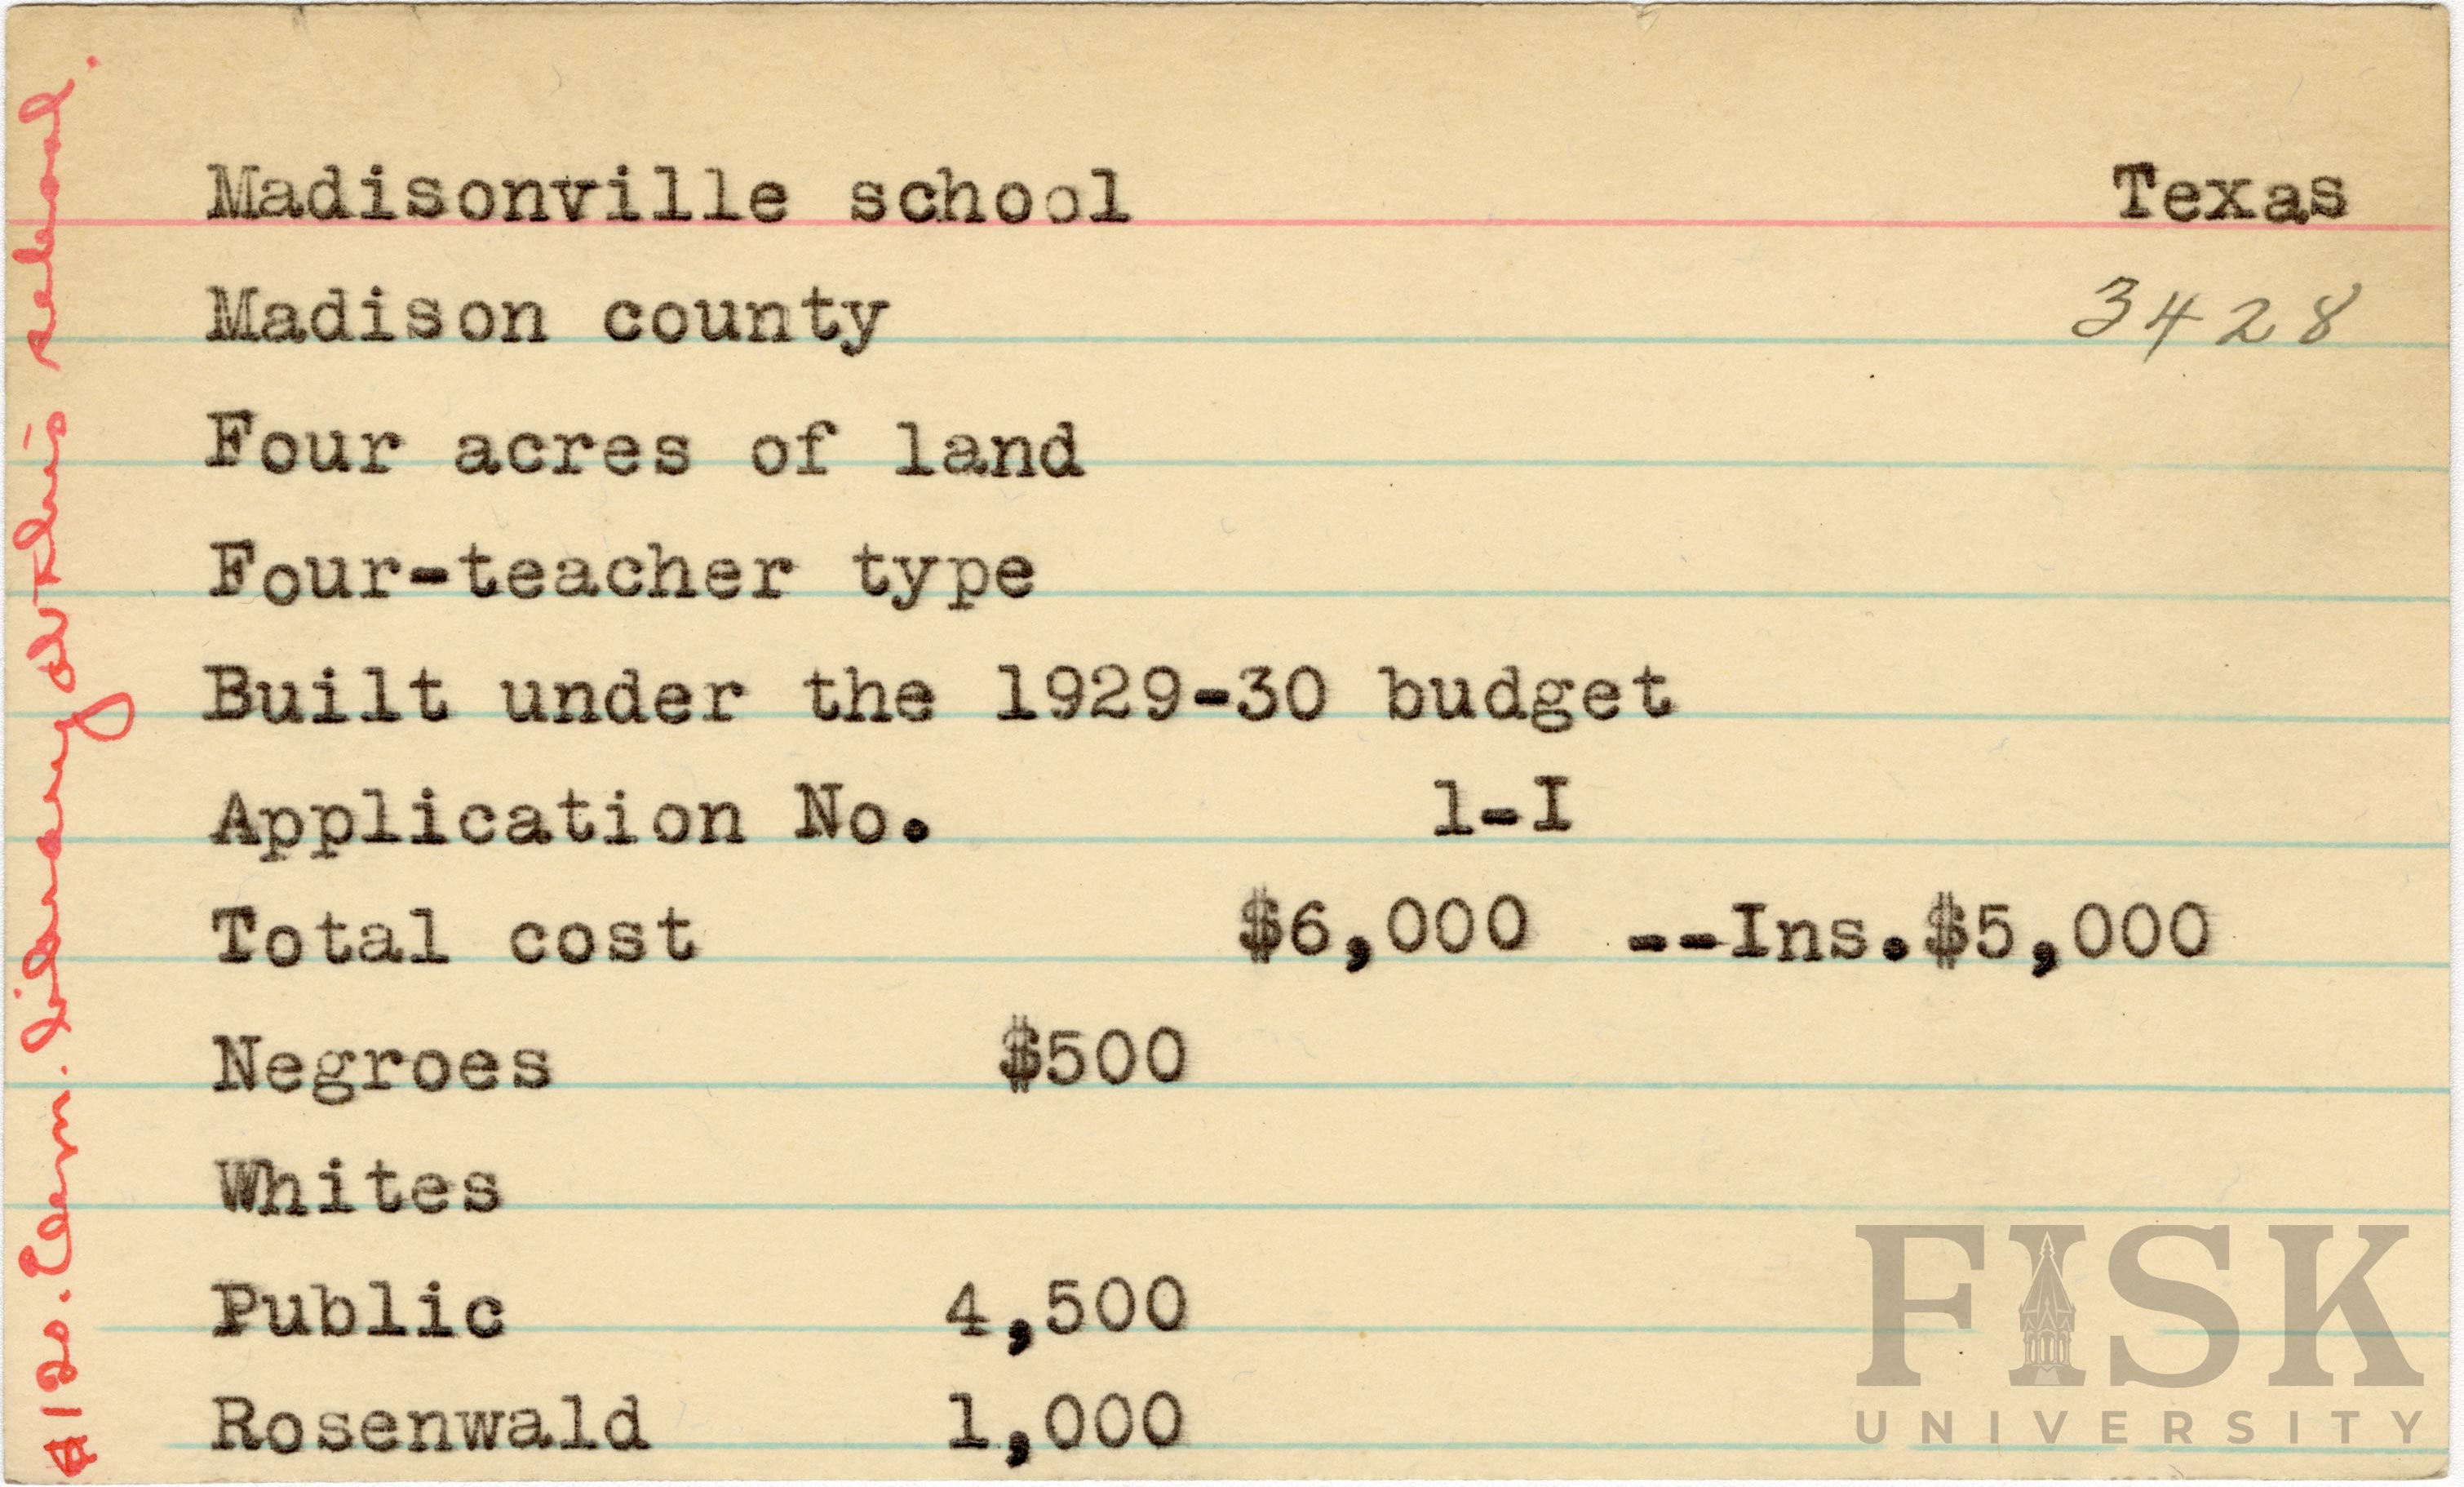 Madisonville school Texas
Madison county 3428
Four acres of land
Four-teacher type
Built under the 1929-30 budget
Application No. 1-I
Total cost $6,000 --Ins.$5,000
Negroes $500
Whites
Public 4,500
Rosenwald 1,000
$120. Elem. library at this school.
FISK
UNIVERSITY